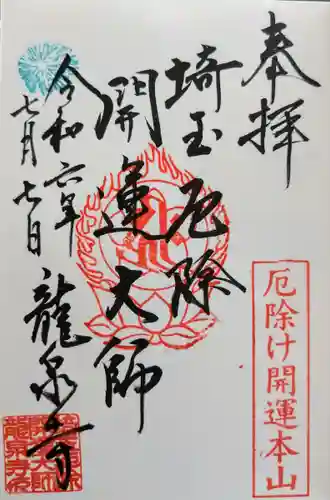 奉拝
厄除け開運本山
埼玉厄除
開運大師
令和六年
七月七日
龍泉寺